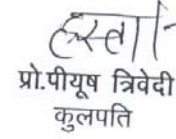 हस्ता/-
प्रो.पीयूष त्रिवेदी
कुलपति